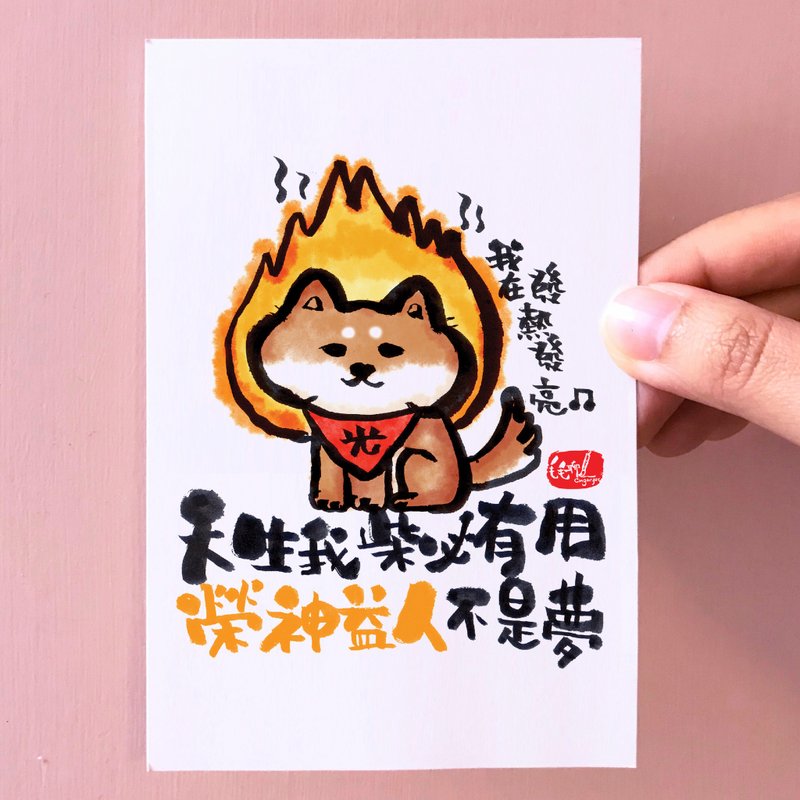 我在發熱發亮♫
光
天生我柴必有用
榮神益人不是夢